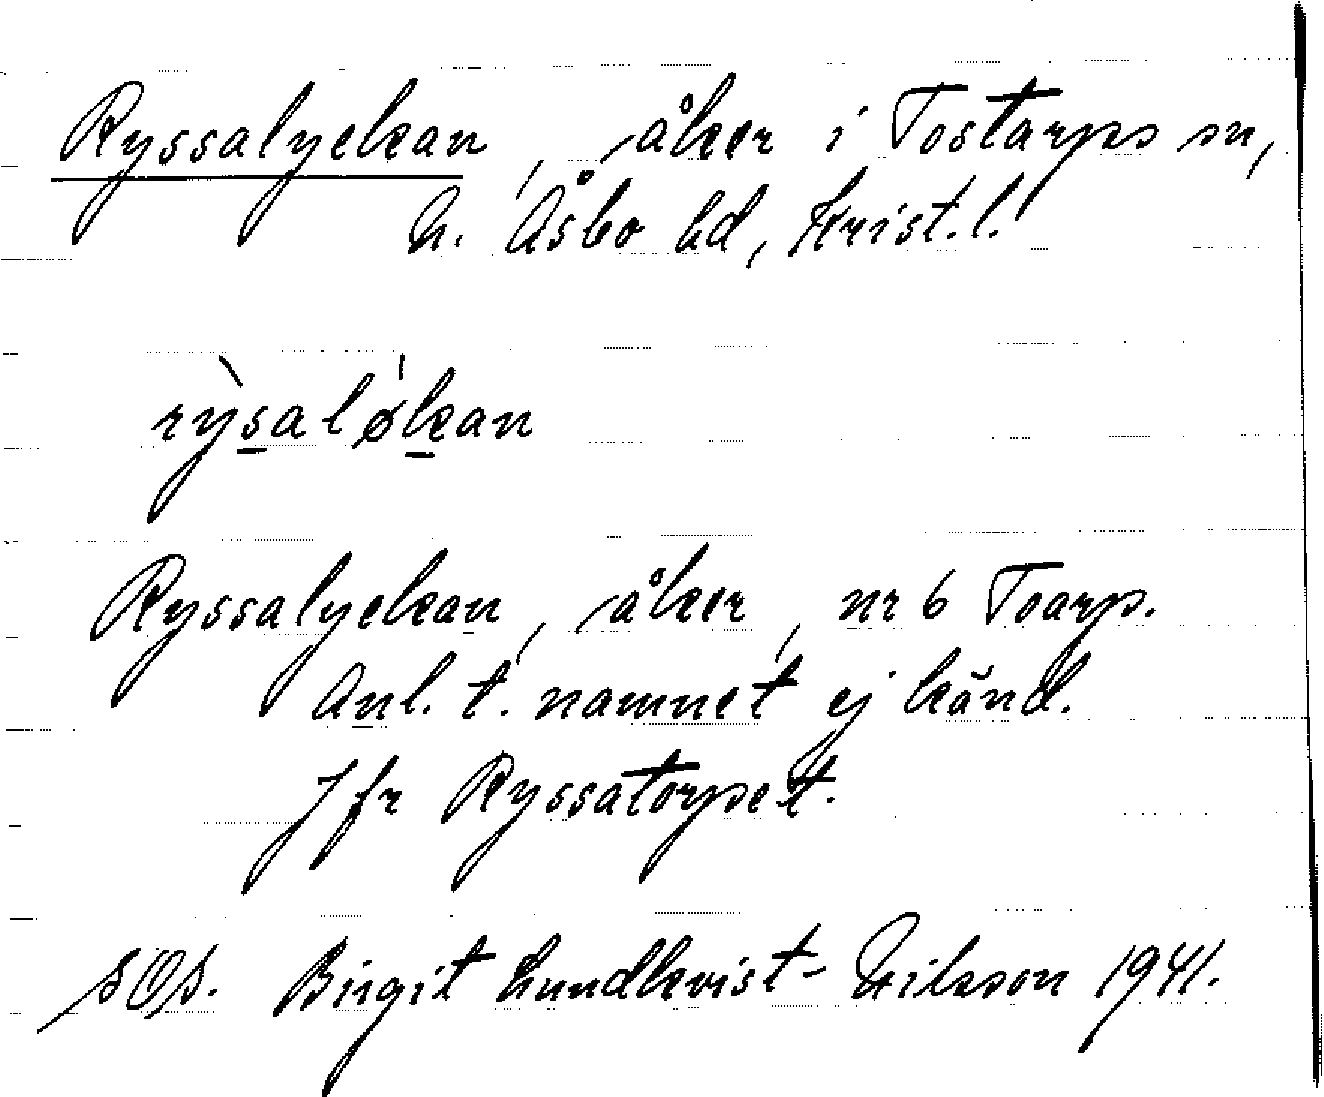 Ryssalyckan, åker i Tostarps sn,
N. Åsbo hd, Krist. l.
rỳsalø̍kan
Ryssalyckan, åker, nr 6 Toarp.
Anl. t. namnet ej känd.
Jfr Ryssatorpet.
Birgit Lundkvist-Nilsson 1941.